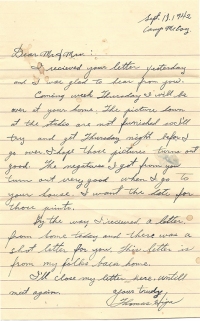 Sept 13, 1942
Camp McCoy
Dear Mr & Mrs :
I received your letter yesterday
and I was glad to hear from you.
Coming week Thursday I will be
over at your home. The picture down
at the studio are not finished we'll
try and get Thursday night before I
go over. I hope those pictures turns out
good. The negatives I got from you
turn out very good when I go to
your house I want the date for
those prints.
By the way I received a letter
from home today and there was a
short letter for you. This letter is
from my folks back home.
I'll close my letter here until
meet again.
yours truly
Thomas